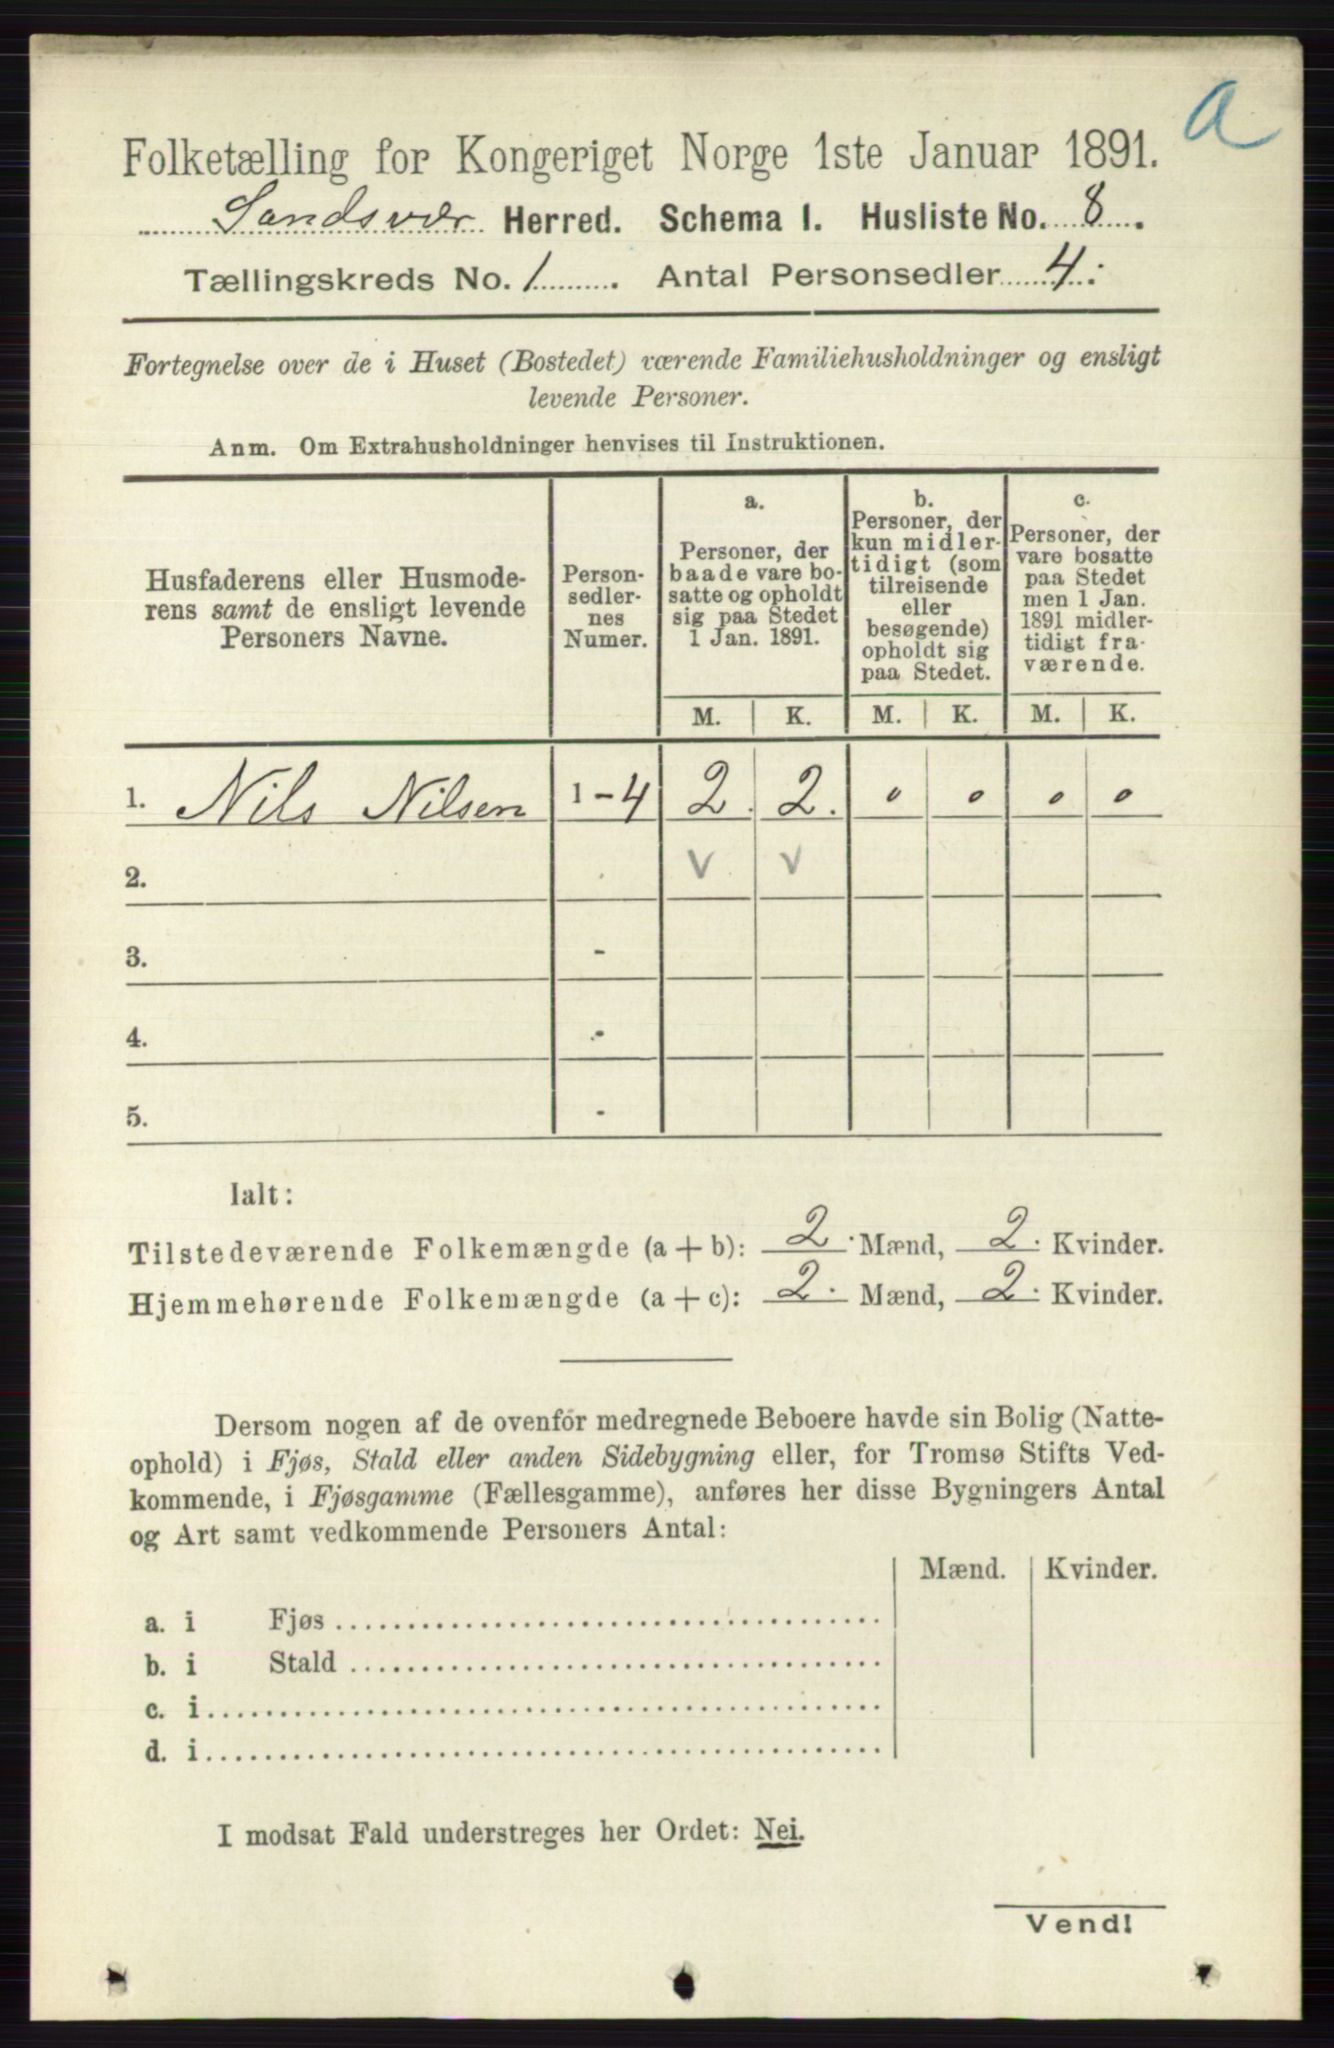 a
Folketælling for Kongeriget Norge 1ste Januar 1891.
Sandsvær Herred. Schema 1. Husliste No. 8.
Tællingskreds No. 1. Antal Personsedler 4.
Fortegnelse over de i Huset (Bostedet) værende Familiehusholdninger og ensligt
levende Personer.
Anm. Om Extrahusholdninger henvises til Instruktionen.
Husfaderens eller Husmode-
rens samt de ensligt levende
Personers Navne.
Person-
sedler-
nes
Numer.
a.
Personer, der
baade vare bo-
satte og opholdt
sig paa Stedet
1 Jan. 1891.
b.
Personer, der
kun midler-
tidigt (som
tilreisende
eller
besøgende)
opholdt sig
paa Stedet.
c.
Personer, der
vare bosatte
paa Stedet
men 1 Jan.
1891 midler-
tidigt fra-
værende.
M. K. M. K. M. K.
1. Nils Nilsen 1-4 2. 2. 0 0 0 0
2. v v
3. -
4. -
5. -
Ialt:
Tilstedeværende Folkemængde (a + b): 2. Mænd, 2. Kvinder.
Hjemmehørende Folkemængde (a + c): 2. Mænd, 2. Kvinder.
Dersom nogen af de ovenfor medregnede Beboere havde sin Bolig (Natte-
ophold) i Fjøs, Stald eller anden Sidebygning eller, for Tromsø Stifts Ved-
kommende, i Fjøsgamme (Fællesgamme), anføres her disse Bygningers Antal
og Art samt vedkommende Personers Antal:
Mænd. Kvinder.
a. i Fjøs
b. i Stald
c. i
d. i
I modsat Fald understreges her Ordet: Nei.
Vend!